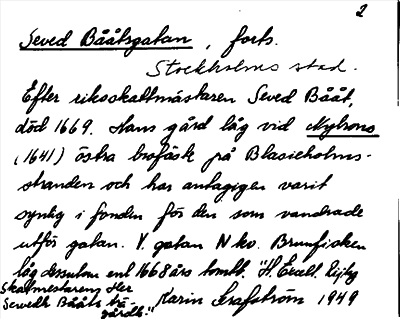 2
Seved Bååtsgatan, forts.
Stockholms stad.
Efter riksskattmästaren Seved Bååt,
död 1669. Hans gård låg vid Nybrons
(1641) östra brofäste på Blasieholms-
stranden och har antagigen varit
synlig i fonden för den som vandrade
utför gatan. V. gatan N kv. Brunfisken
låg dessutom enl 1668 års tomtb. "H. Excell.
Skattmestarens Her
Sewedh Bååts trä-
gårdh."
Karin Grafström 1949